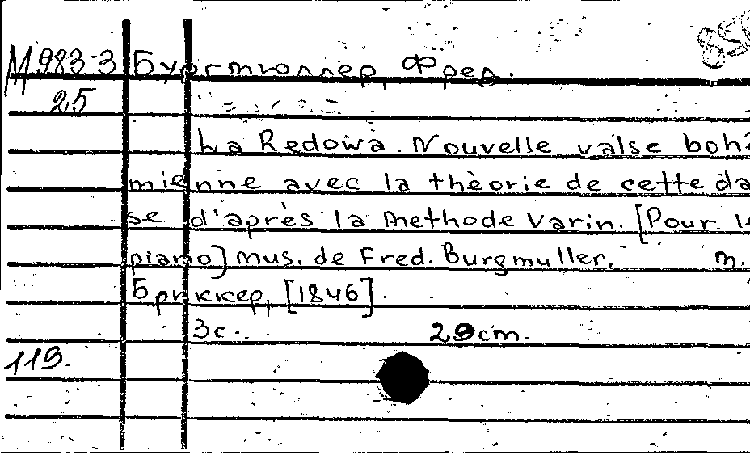 М983-3 Бургмюллер, Фред.
25
La Redowa. Nouvelle valse bohé
mienne avec la thèorie de cette da
se d'après la methode Varin. [Pour le
piano] mus. de Fred. Burgmuller. m.
Бриккер, [1846].
3с. 29cm.
119.